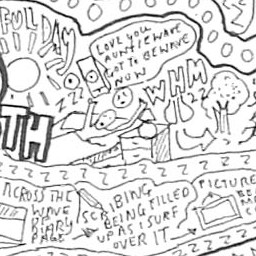 FUL DAY
LOVE YOU
AUNTIE WAVE
GOT TO BEWAVE
NOW
WHM
ZZZ
TH
ACROSS THE
WAVE
OF
DIARY
PAGE
SCRIBING
BEING FILLED
UP AS I SURF
OVER IT
PICTURE
BE